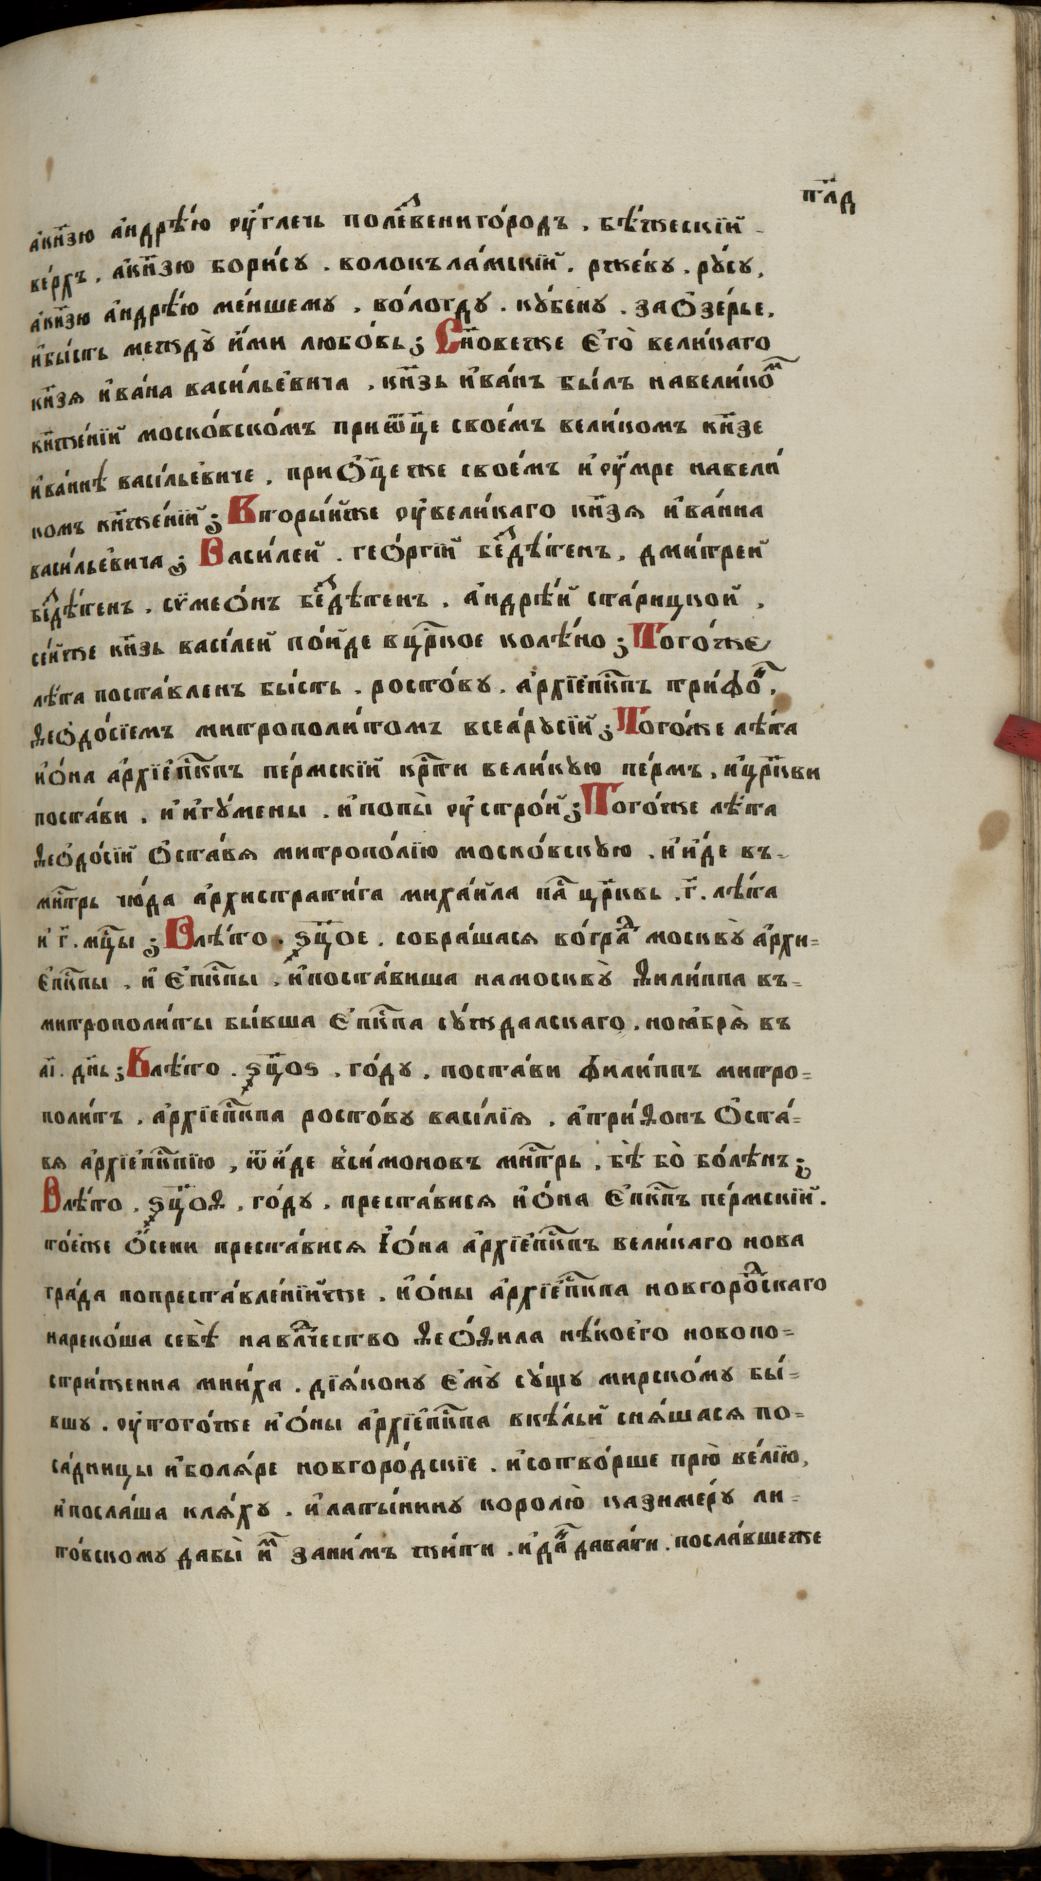 пл҃д
акн҃зю андрѣ́ю оу҆́глечь полевенигоро́дъ . бѣ́жескїй
ве́рхъ . акн҃зю бори́су . волокъла́мскїй . рже́ву . ру́су ,
акн҃зю андрѣ́ю ме́ншему , во́логду . ку́бену . заѻзе́рье ,
и҆бы́сть между̀ и҆́ми любо́вь ; Сн҃овеже є҆го̀ вели́каго
кн҃зѧ и҆ва́на васи́льевича , кн҃зь и҆ва́нъ бы́лъ навели́коⷨ
кн҃же́нїи моско́вскомъ приѿц҃е свое́мъ вели́комъ кн҃зе
и҆ва́ннѣ васі́льевиче , приѻц҃еже свое́мъ и҆оу҆́мре навели́
комъ кн҃же́нїи ; Вторы́йже оу҆вели́каго кн҃зѧ и҆ва́нна
васи́льевича ; Васи́лей . гео́ргїй беⷥдѣ́тенъ , дми́трей
беⷥдѣ́тенъ . сѷмео́нъ беⷥдѣ́тенъ . а҆ндрѣ́й ста́рицкой ,
се́йже кн҃зь васі́лей по́йде вцр҃кое колѣ́но ; Того́же
лѣ́та поста́вленъ бы́сть . росто́ву . а҆рхїепк҃пъ три́фоⷩ ,
Ѳеѻдо́сїемъ митрополи́томъ всеа́русїи ; Того́же лѣ́та
и҆ѡ́на а҆рхїепк҃пъ пе́рмскїй кр҃ти вели́кую пе́рмъ , и҆цр҃кви
поста́ви . и҆и҆гу́мены . и҆попы̀ оу҆стро́и ; Того́же лѣ́та
Ѳеѻдо́сїй ѻ҆ста́вѧ митропо́лїю моско́вскую . и҆и҆́де въ-
мн҃трь чю́да а҆рхистрати́га миха́ила на҃ цр҃ковь . г҃ . лѣ́та
и г҃ . мц҃ы ; Влѣ́то . ѕц҃ое . собра́шасѧ во́граⷣ москву̀ а҆рхи=
є҆пк҃пы , и҆ є҆пк҃пы , и҆поста́виша намоскву̀ Ѳили́ппа въ-
митрополи́ты бы́вша є҆пк҃па су́ждалскаго . ноѧ́брѧ̀ въ
а҃і . дн҃ь ; Влѣ́то . ѕц҃оѕ . го́ду . поста́ви филі́ппъ митро=
поли́тъ . а҆рхїепк҃па росто́ву васі́лїѧ . а҆три́Ѳонъ ѻ҆ста́=
вѧ а҆рхїепк҃пїю , ѿи́де всі́моновъ мн҃трь . бѣ̀ бо̀ бо́лѣнъ ;
Влѣ́то . ѕц҃оѳ . го́ду . преста́висѧ и҆ѡ́на є҆пк҃пъ пе́рмскїй .
то́еже ѻ҆́сени преста́висѧ І҆ѡ́на а҆рхїепк҃пъ вели́каго нова
гра́да попреста́вленїиже . и҆ѡ́ны а҆рхїепк҃па новгороⷣскаго
нареко́ша себѣ̀ навлⷣчество Ѳеѻ́Ѳила нѣ́коего новопо=
стри́женна мни́ха . дїѧ́кону є҆му̀ су́щу мирско́му бы́=
вшу . оу҆того́же и҆ѡ́ны а҆рхїепк҃па вкѣ́льи снѧ́шасѧ по=
са́дницы и҆болѧ́ре новгоро́дскїе . и҆сотво́рше прю̀ ве́лїю,
и҆посла́ша клѧ́ху . и҆латы́нину королю̀ казиме́ру ли=
то́вскому дабы̀ и҆ⷨ зани́мъ жи́ти . и҆даⷩ дава́ти . посла́вшеже